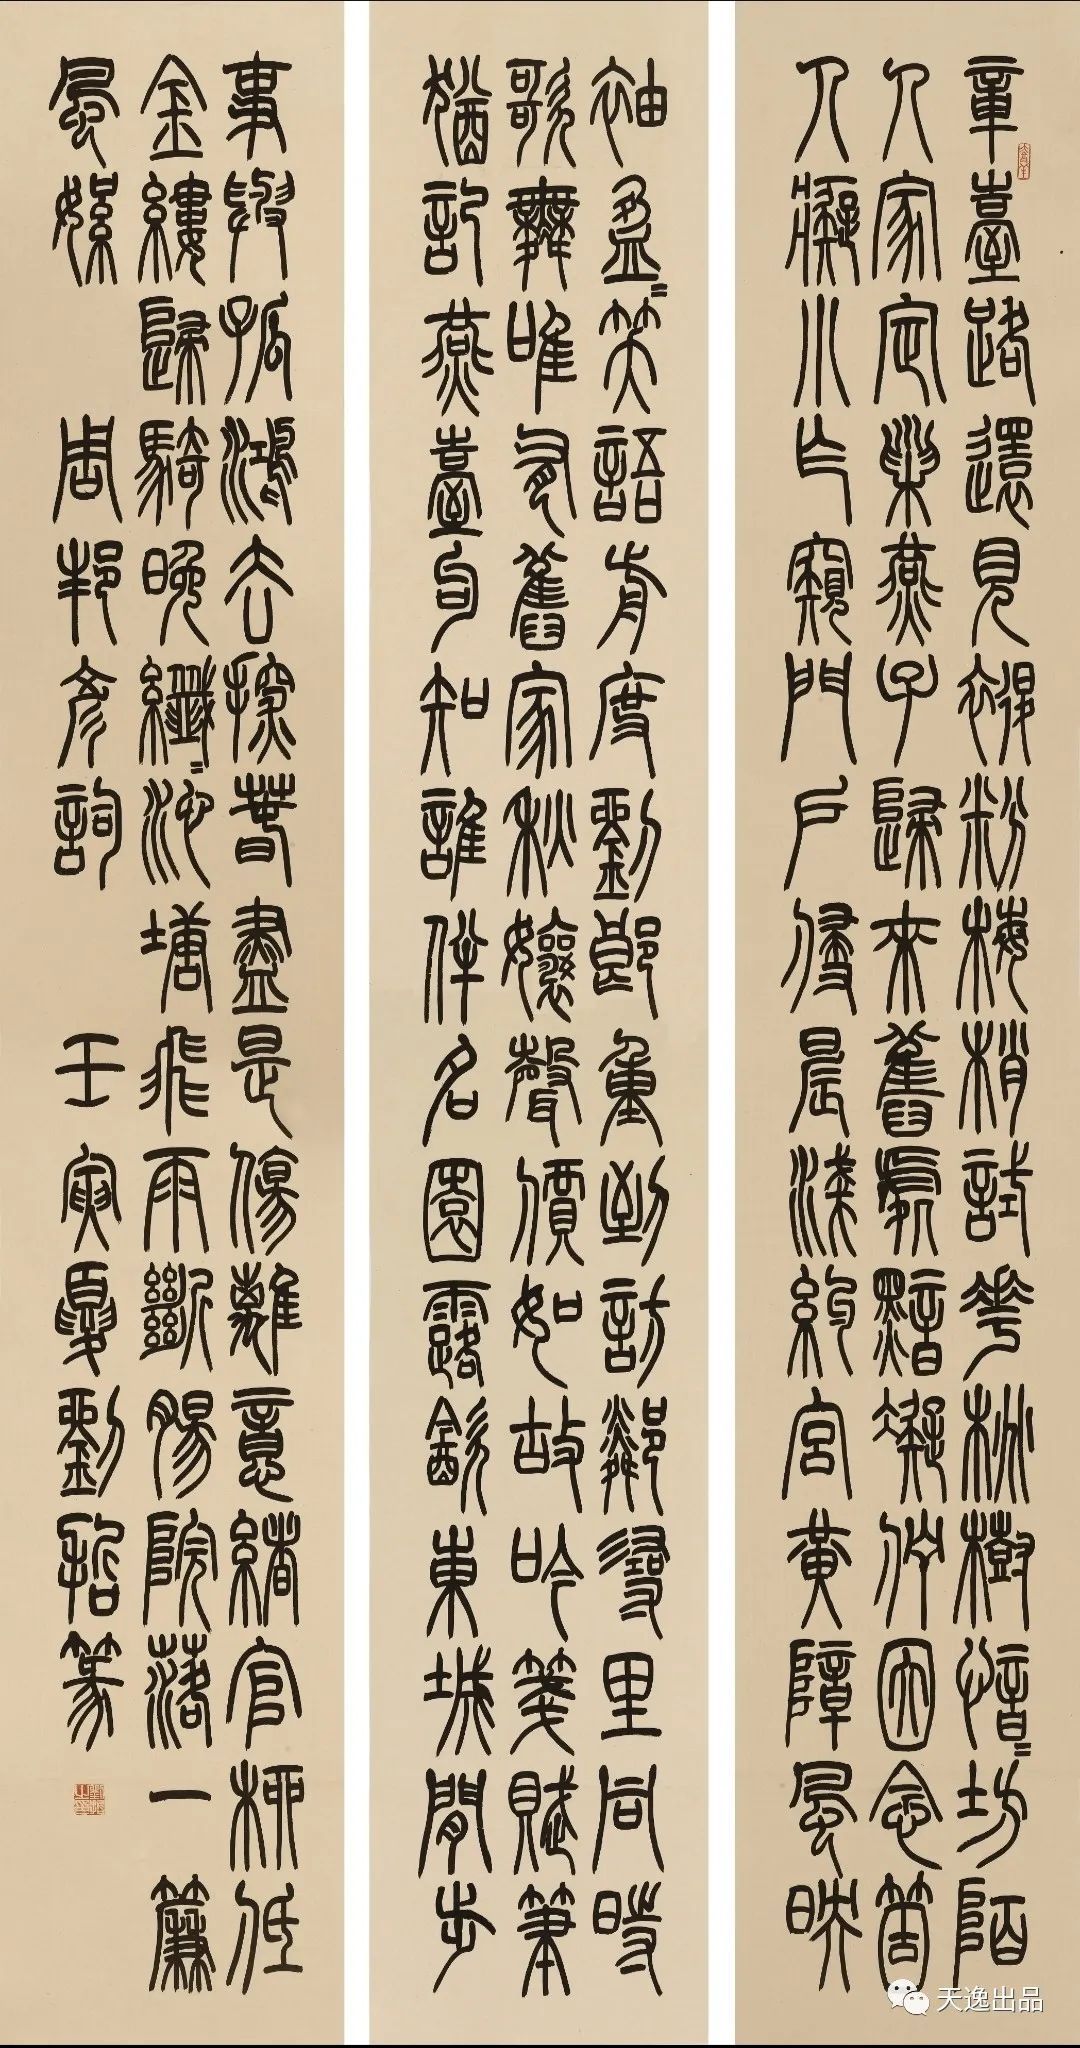 章臺路還見褪粉梅梢試花桃樹愔〻坊陌
人家定巢燕子歸來舊處黯凝佇因念箇
人癡小乍窺門戶侵晨淺約宮黃障風映
袖盈〻笑語前度劉郎重到訪鄰尋里同時
歌舞唯有舊家秋孃聲價如故吟箋賦筆
猶記燕臺句知誰伴名園露飲東城閒步
事與孤鴻去探春盡是傷離意緒官柳低
金縷歸騎晚纖〻池塘飛雨斷腸院落一簾
風絮 周邦彥詞 壬寅夏劉哲篆
天逸出品